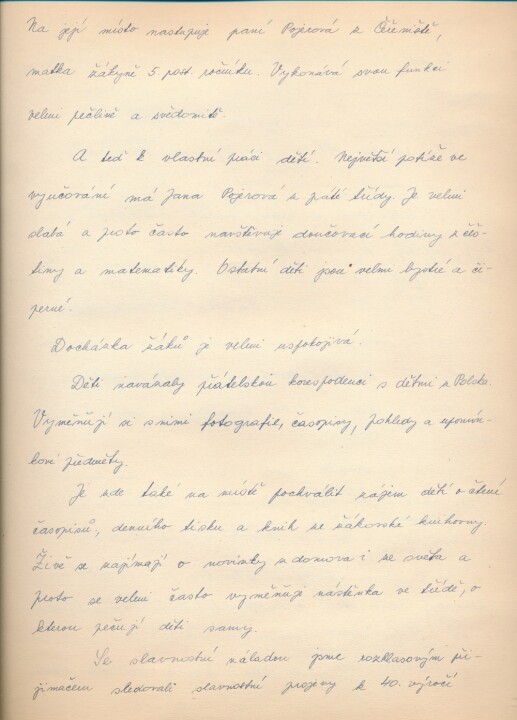 Na její místo nastupuje paní Pojerová z Čeřeniště,
matka žákyně 5. post. ročníku. Vykonává svou funkci
velmi pečlivě a svědomitě.
A teď k vlastní práci dětí. Největší potíže ve
vyučování má Jana Pojerová z páté třídy. Je velmi
slabá a proto často navštěvuje doučovací hodiny z češ-
tiny a matematiky. Ostatní děti jsou velmi bystré a či-
perné.
Docházka žáků je velmi uspokojivá.
Děti navázaly přátelskou korespodenci s dětmi z Polska.
Vyměňují si s nimi fotografie, časopisy, pohledy a upomín-
kové předměty.
Je zde také na místě pochválit zájem dětí o čtení
časopisů, denního tisku a knih ze žákovské knihovny.
Živě se zajímají o novinky z domova i ze světa a
proto se velmi často vyměňuje nástěnka ve třídě, o
kterou pečují děti samy.
Se slavnostní náladou jsme rozhlasovým při-
jímačem sledovali slavnostní projevy k 40. výročí